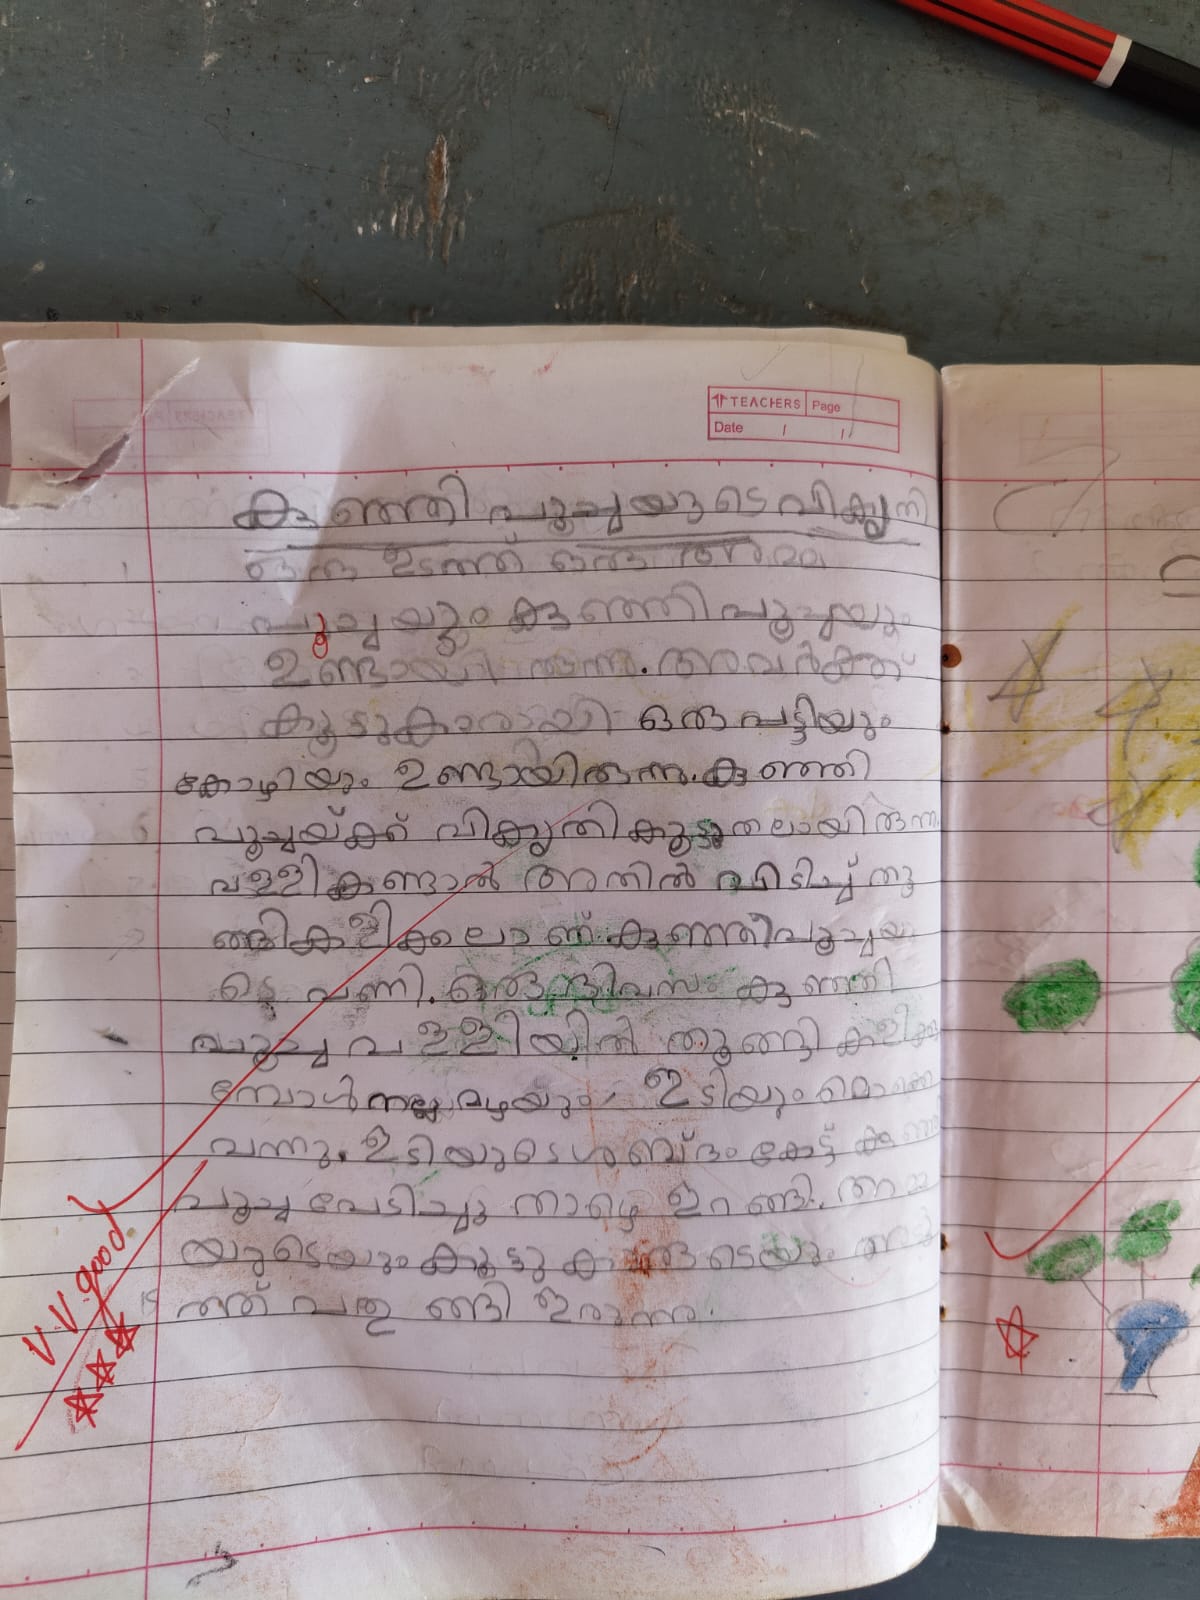 TEACHERS Page
Date / /
കുഞ്ഞി പൂച്ചയുടെ വികൃതി
ഒരു ഇടത്ത് ഒരു അമ്മ
പൂച്ചയും കുഞ്ഞി പൂച്ചയും
ഉണ്ടായിരുന്നു. അവർക്ക്
കൂട്ടുകാരായി ഒരു പട്ടിയും
കോഴിയും ഉണ്ടായിരുന്നു. കുഞ്ഞി
പൂച്ചയ്ക്ക് വികൃതി കൂടുതലായിരുന്നു.
വള്ളി കണ്ടാൽ അതിൽ പിടിച്ച് തൂ
ങ്ങി കളിക്കലാണ് കുഞ്ഞി പൂച്ചയു
ടെ പണി. ഒരു ദിവസം കുഞ്ഞി
പൂച്ച വള്ളിയിൽ തൂങ്ങി കളിക്കു
മ്പോൾ നല്ല മഴയും ഇടിയുംമൊക്കെ
വന്നു. ഇടിയുടെ ശബ്ദം കേട്ട് കുഞ്ഞി
പൂച്ച പേടിച്ചു താഴെ ഇറങ്ങി. അമ്മ
യുടെയും കൂട്ടുകാരുടെയും അടു
ത്ത് പതുങ്ങി ഇരുന്നു.
V.V.good